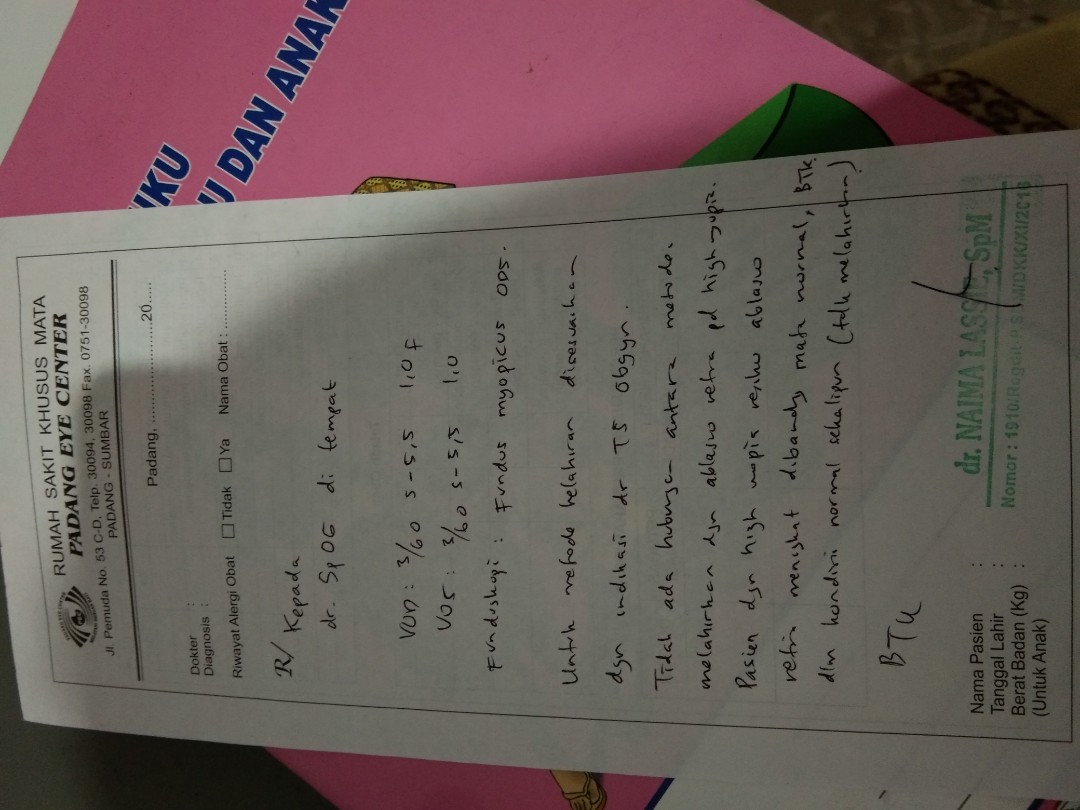 RUMAH SAKIT KHUSUS MATA
PADANG EYE CENTER
Jl. Pemuda No. 53 C-D. Telp. 30094, 30098 Fax. 0751-30098
PADANG - SUMBAR
Padang, ........................20.....
Dokter :
Diagnosis :
Riwayat Alergi Obat □ Tidak □ Ya Nama Obat : ....................
R/ Kepada
dr. SpOG di tempat
VOD : 3/60 S-5,5 1,0 F
VOS : 3/60 S-5,5 1,0
Funduskopi : Fundus myopicus ODS.
Untuk metode kelahiran disesuaikan
dgn indikasi dr TS Obgyn.
Tidak ada hubungan antara metode
melahirkan dgn ablasio retina pd high myopia.
Pasien dgn high myopia resiko ablasio
retina meningkat dibanding mata normal, BTK
dlm kondisi normal sekalipun (tdk melahirkan)
BTK
dr. NAIMA LASSIE, SpM
Nomor : 1910/Reguler
Nama Pasien :
Tanggal Lahir :
Berat Badan (Kg) :
(Untuk Anak)
UKU
U DAN ANAK